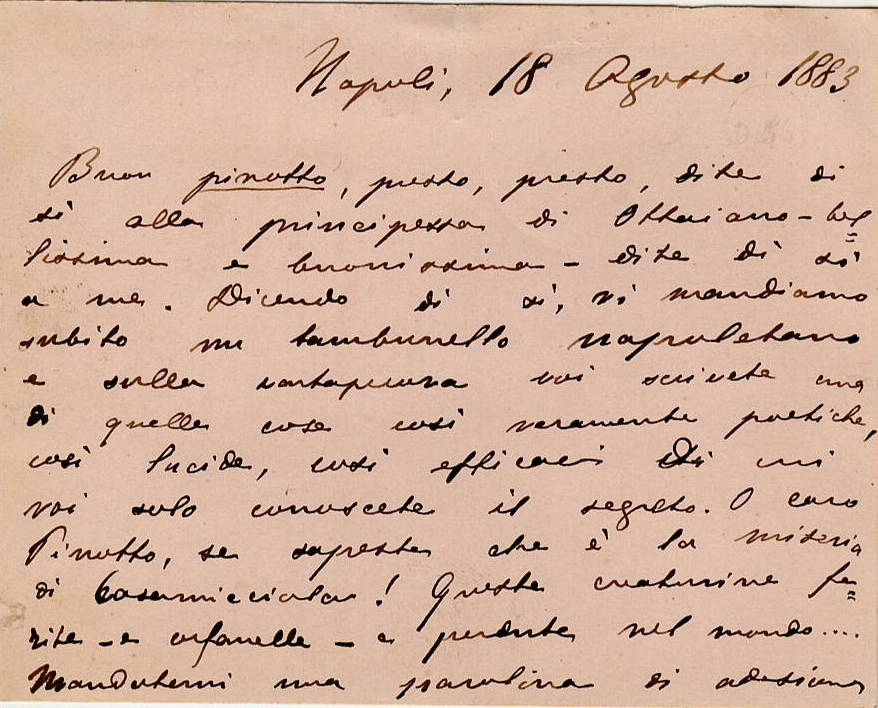 Napoli, 18 Agosto 1883
Buon pinotto, presto, presto, dite di
sì alla principessa di Ottaiano - bel=
lissima e buonissima - dite di sì
a me. Dicendo di sì, vi mandiamo
subito un tamburello napoletano
e sulla cartapecora voi scrivete una
di quelle cose così veramente poetiche,
così lucide, così efficaci di cui
voi solo conoscete il segreto. O caro
Pinotto, se sapeste che è la miseria
di Casamicciola! Queste creaturine fe=
rite - e orfanelle - e perdute nel mondo....
Mandatemi una parolina di adesione